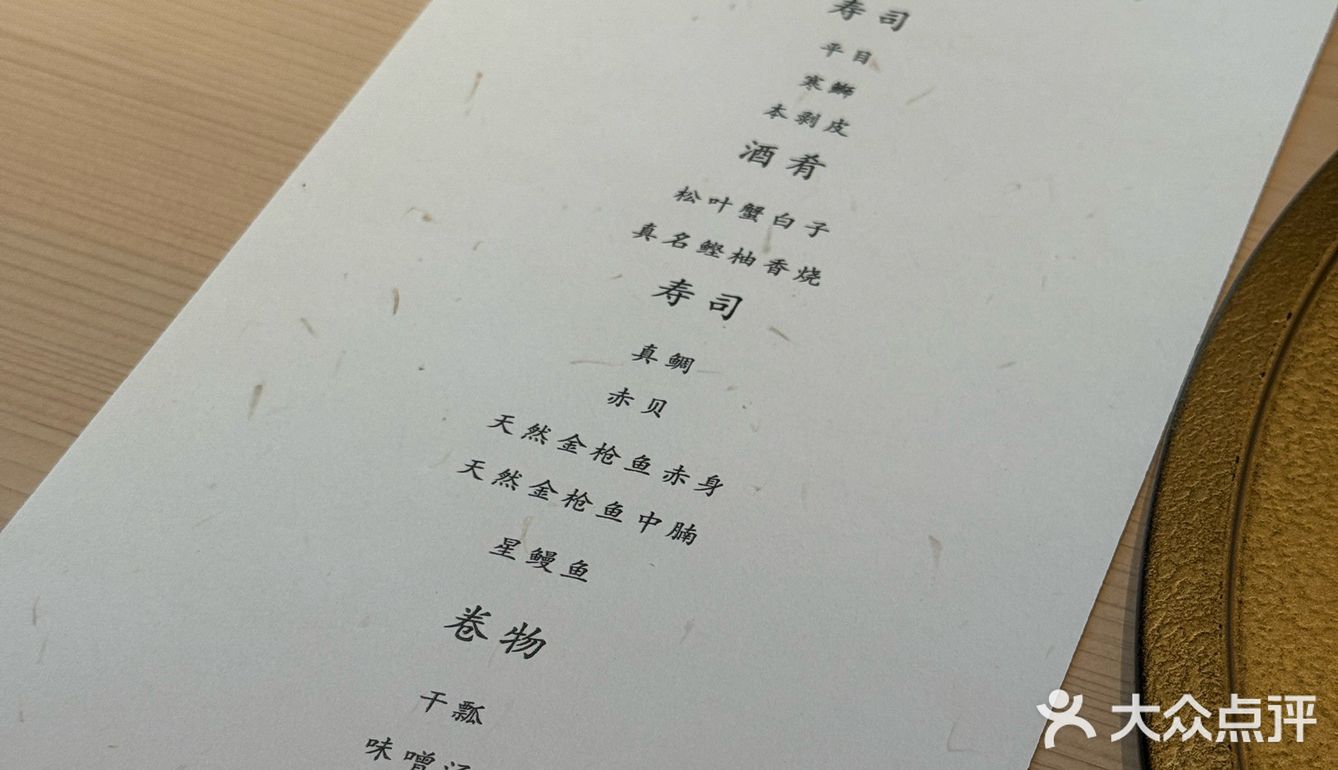 寿司
平目
寒鰤
本剥皮
酒肴
松叶蟹白子
真名鲣柚香烧
寿司
真鲷
赤贝
天然金枪鱼赤身
天然金枪鱼中腩
星鳗鱼
卷物
干瓢
味噌汤
大众点评